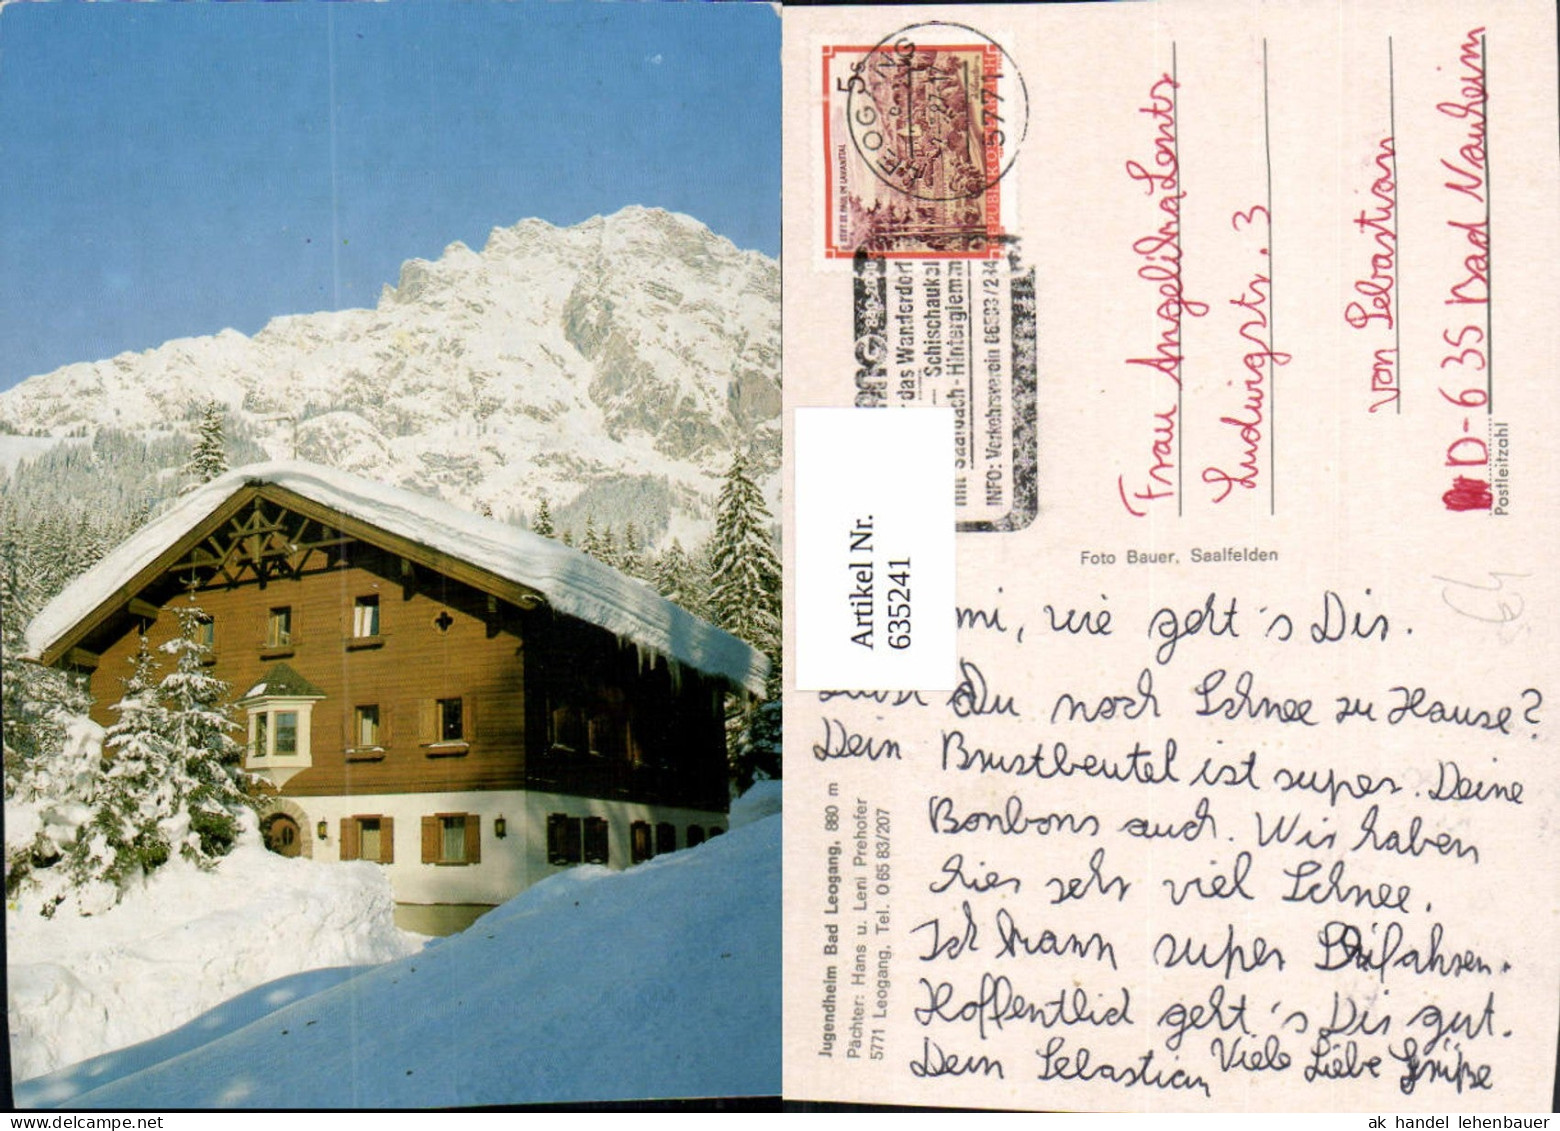 5 S
STIFT ST. PAUL IM LAVANTTAL
REPUBLIK ÖSTERREICH
LEOGANG
5771
das Wanderdorf
Schischaukel
mit Saalbach-Hinterglemm
INFO: Verkehrsverein 06583/234
Frau Angelika Lentz
Ludwigstr. 3
von Sebastian
D-635 Bad Nauheim
Postleitzahl
Foto Bauer, Saalfelden
Artikel Nr.
635241
mi, wie geht's Dir.
Du noch Schnee zu Hause?
Dein Brustbeutel ist super. Deine
Bonbons auch. Wir haben
hier sehr viel Schnee.
Ich kann super Skifahren.
Hoffentlich geht's Dir gut.
Dein Sebastian Viele Liebe Grüße
Jugendheim Bad Leogang, 880 m
Pächter: Hans u. Leni Prehofer
5771 Leogang, Tel. 0 65 83/207
ak handel lehenbauer